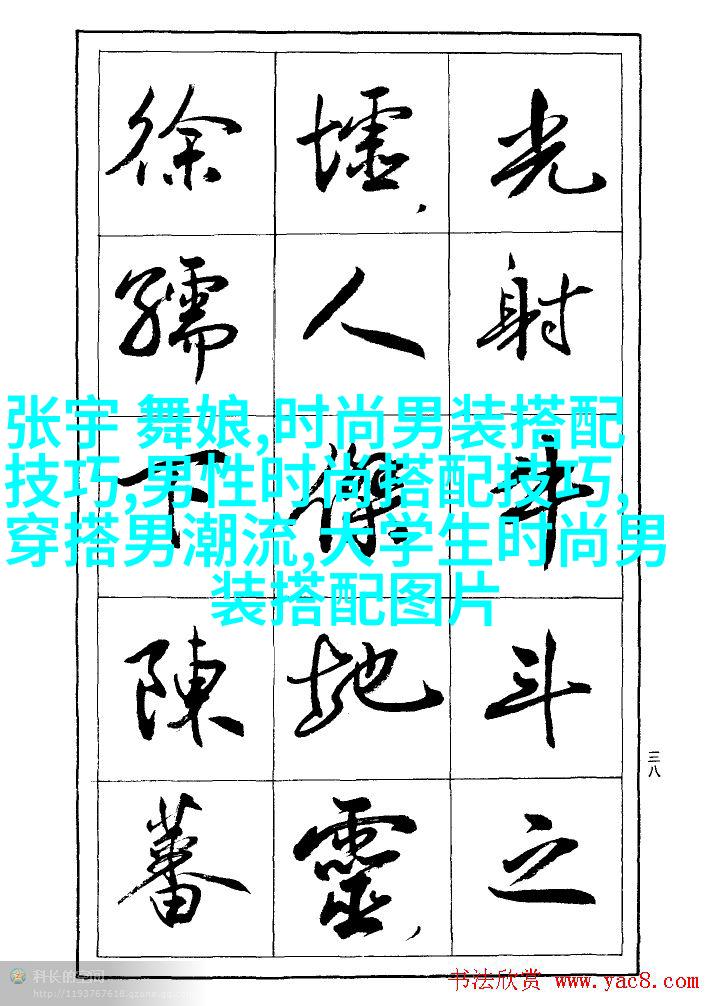 光射牛斗之
墟,人傑地靈,
徐孺下陳蕃
张宇 舞娘,时尚男装搭配
技巧,男性时尚搭配技巧,
穿搭男潮流,大学生时尚男
装搭配图片
三八
科长的空间
http://1193767618.qzone.qq.com
书法欣赏 www.yac8.com